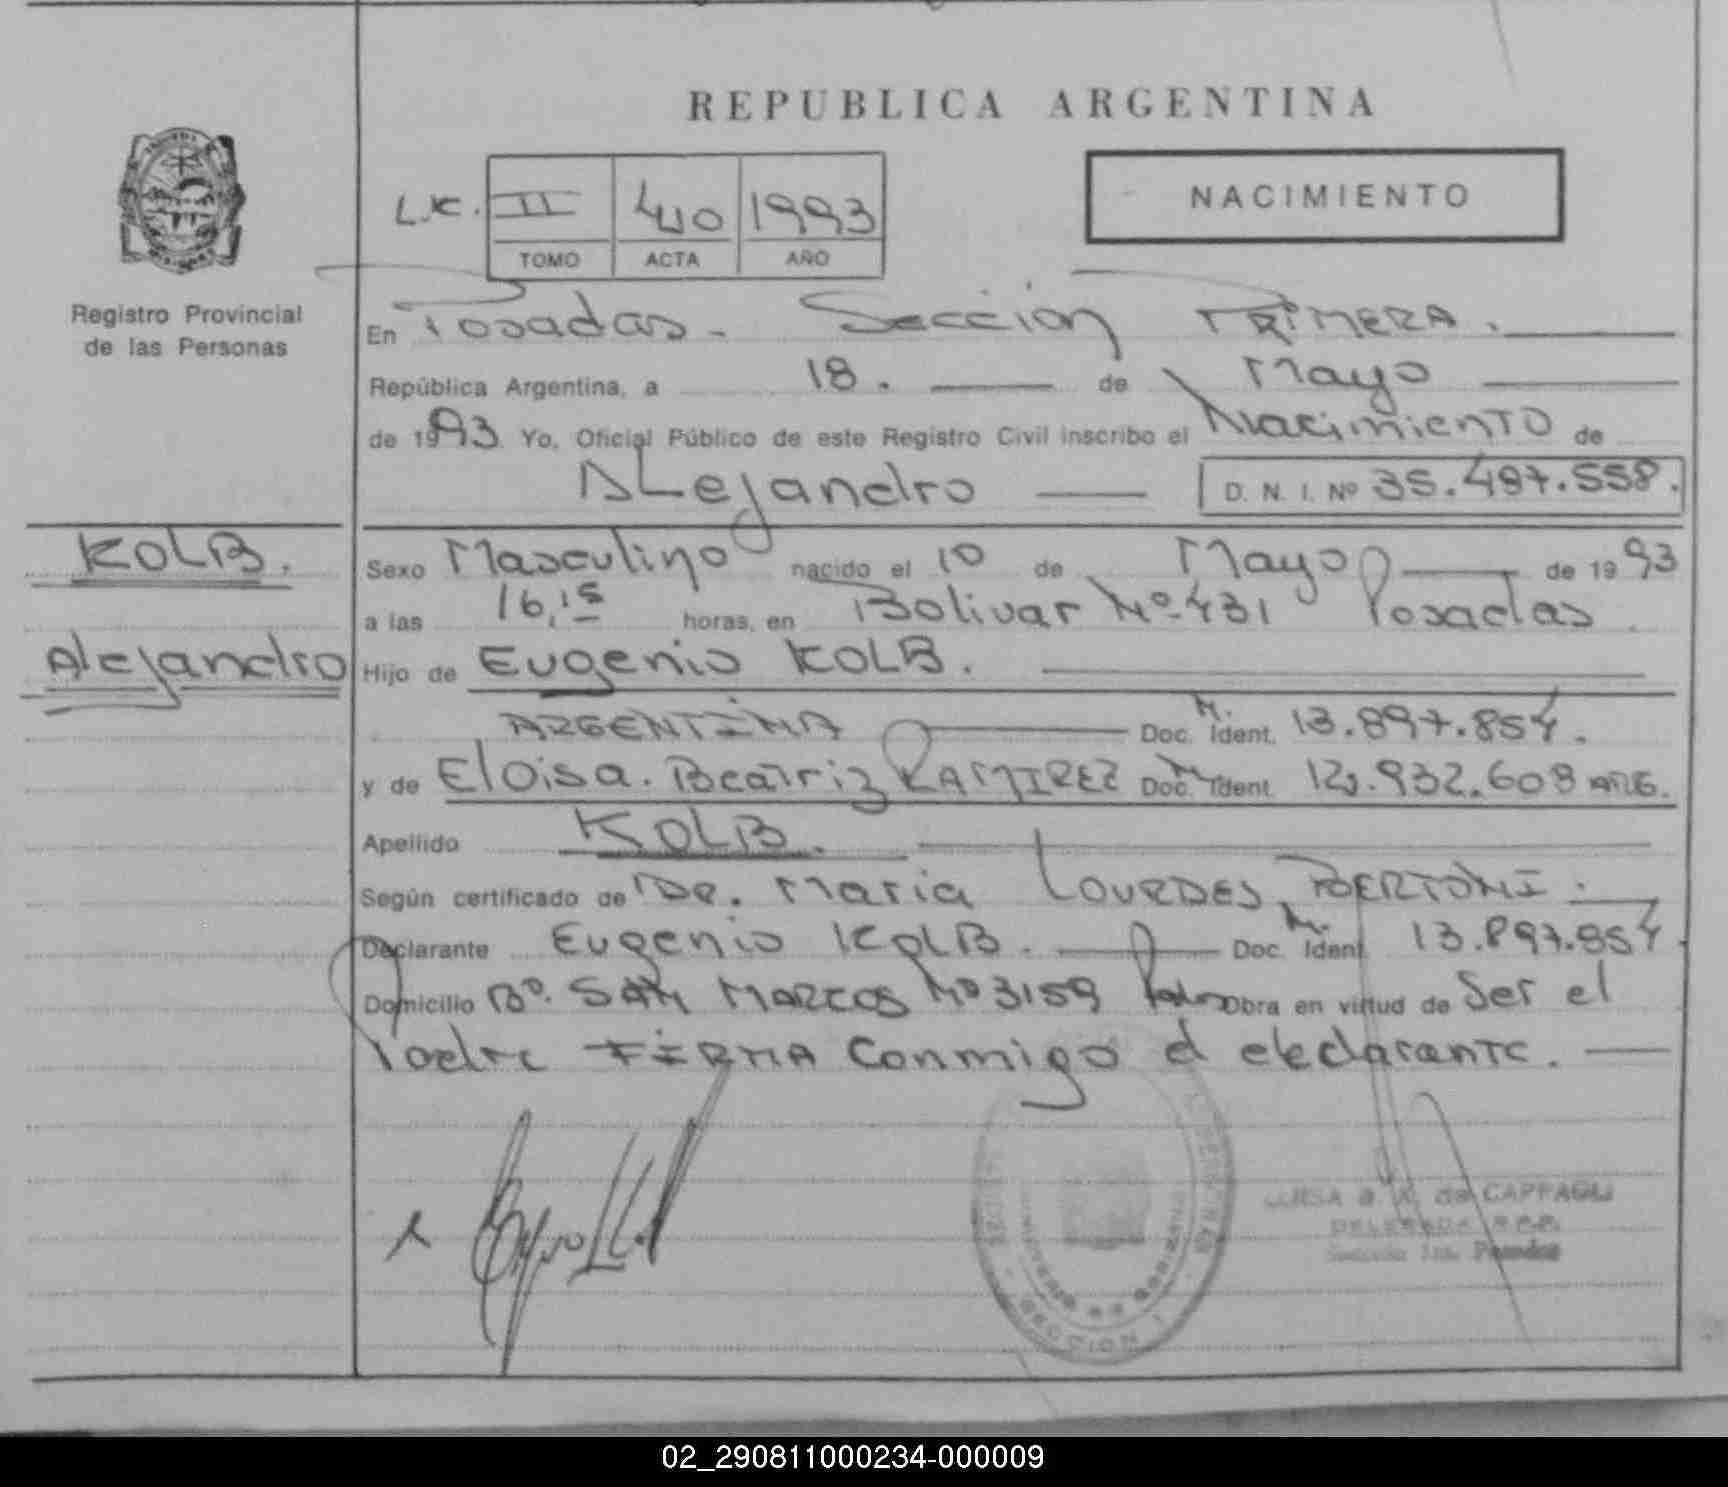 REPUBLICA ARGENTINA
L.C. II 440 1993
TOMO ACTA AÑO
NACIMIENTO
Registro Provincial
de las Personas
En Posadas - Sección PRIMERA.
República Argentina, a 18. de Mayo
de 1993 Yo, Oficial Público de este Registro Civil inscribo el Nacimiento de
ALejandro D. N. I. Nº 35.497.558.
KOLB.
Alejandro
Sexo Masculino nacido el 10 de Mayo de 1993
a las 16,15 horas, en Bolivar Nº 431 Posadas.
Hijo de Eugenio KOLB.
ARGENTINA Doc. M. Ident. 13.897.854.
y de Eloisa. Beatriz RAMIREZ Doc. M. Ident. 12.932.608 ARG.
Apellido KOLB.
Según certificado de Dr. Maria LOURDES BERTONI.
Declarante Eugenio KOLB. Doc. M. Ident 13.897.854
Domicilio Bº. SAN MARCOS Nº 3159 Obra en virtud de Ser el
Padre FIRMA Conmigo el declarante.
de CAPPAGLI
DELEGADA R.P.P.
Sección 1ra. Posadas
SECCION 1
02_290811000234-000009